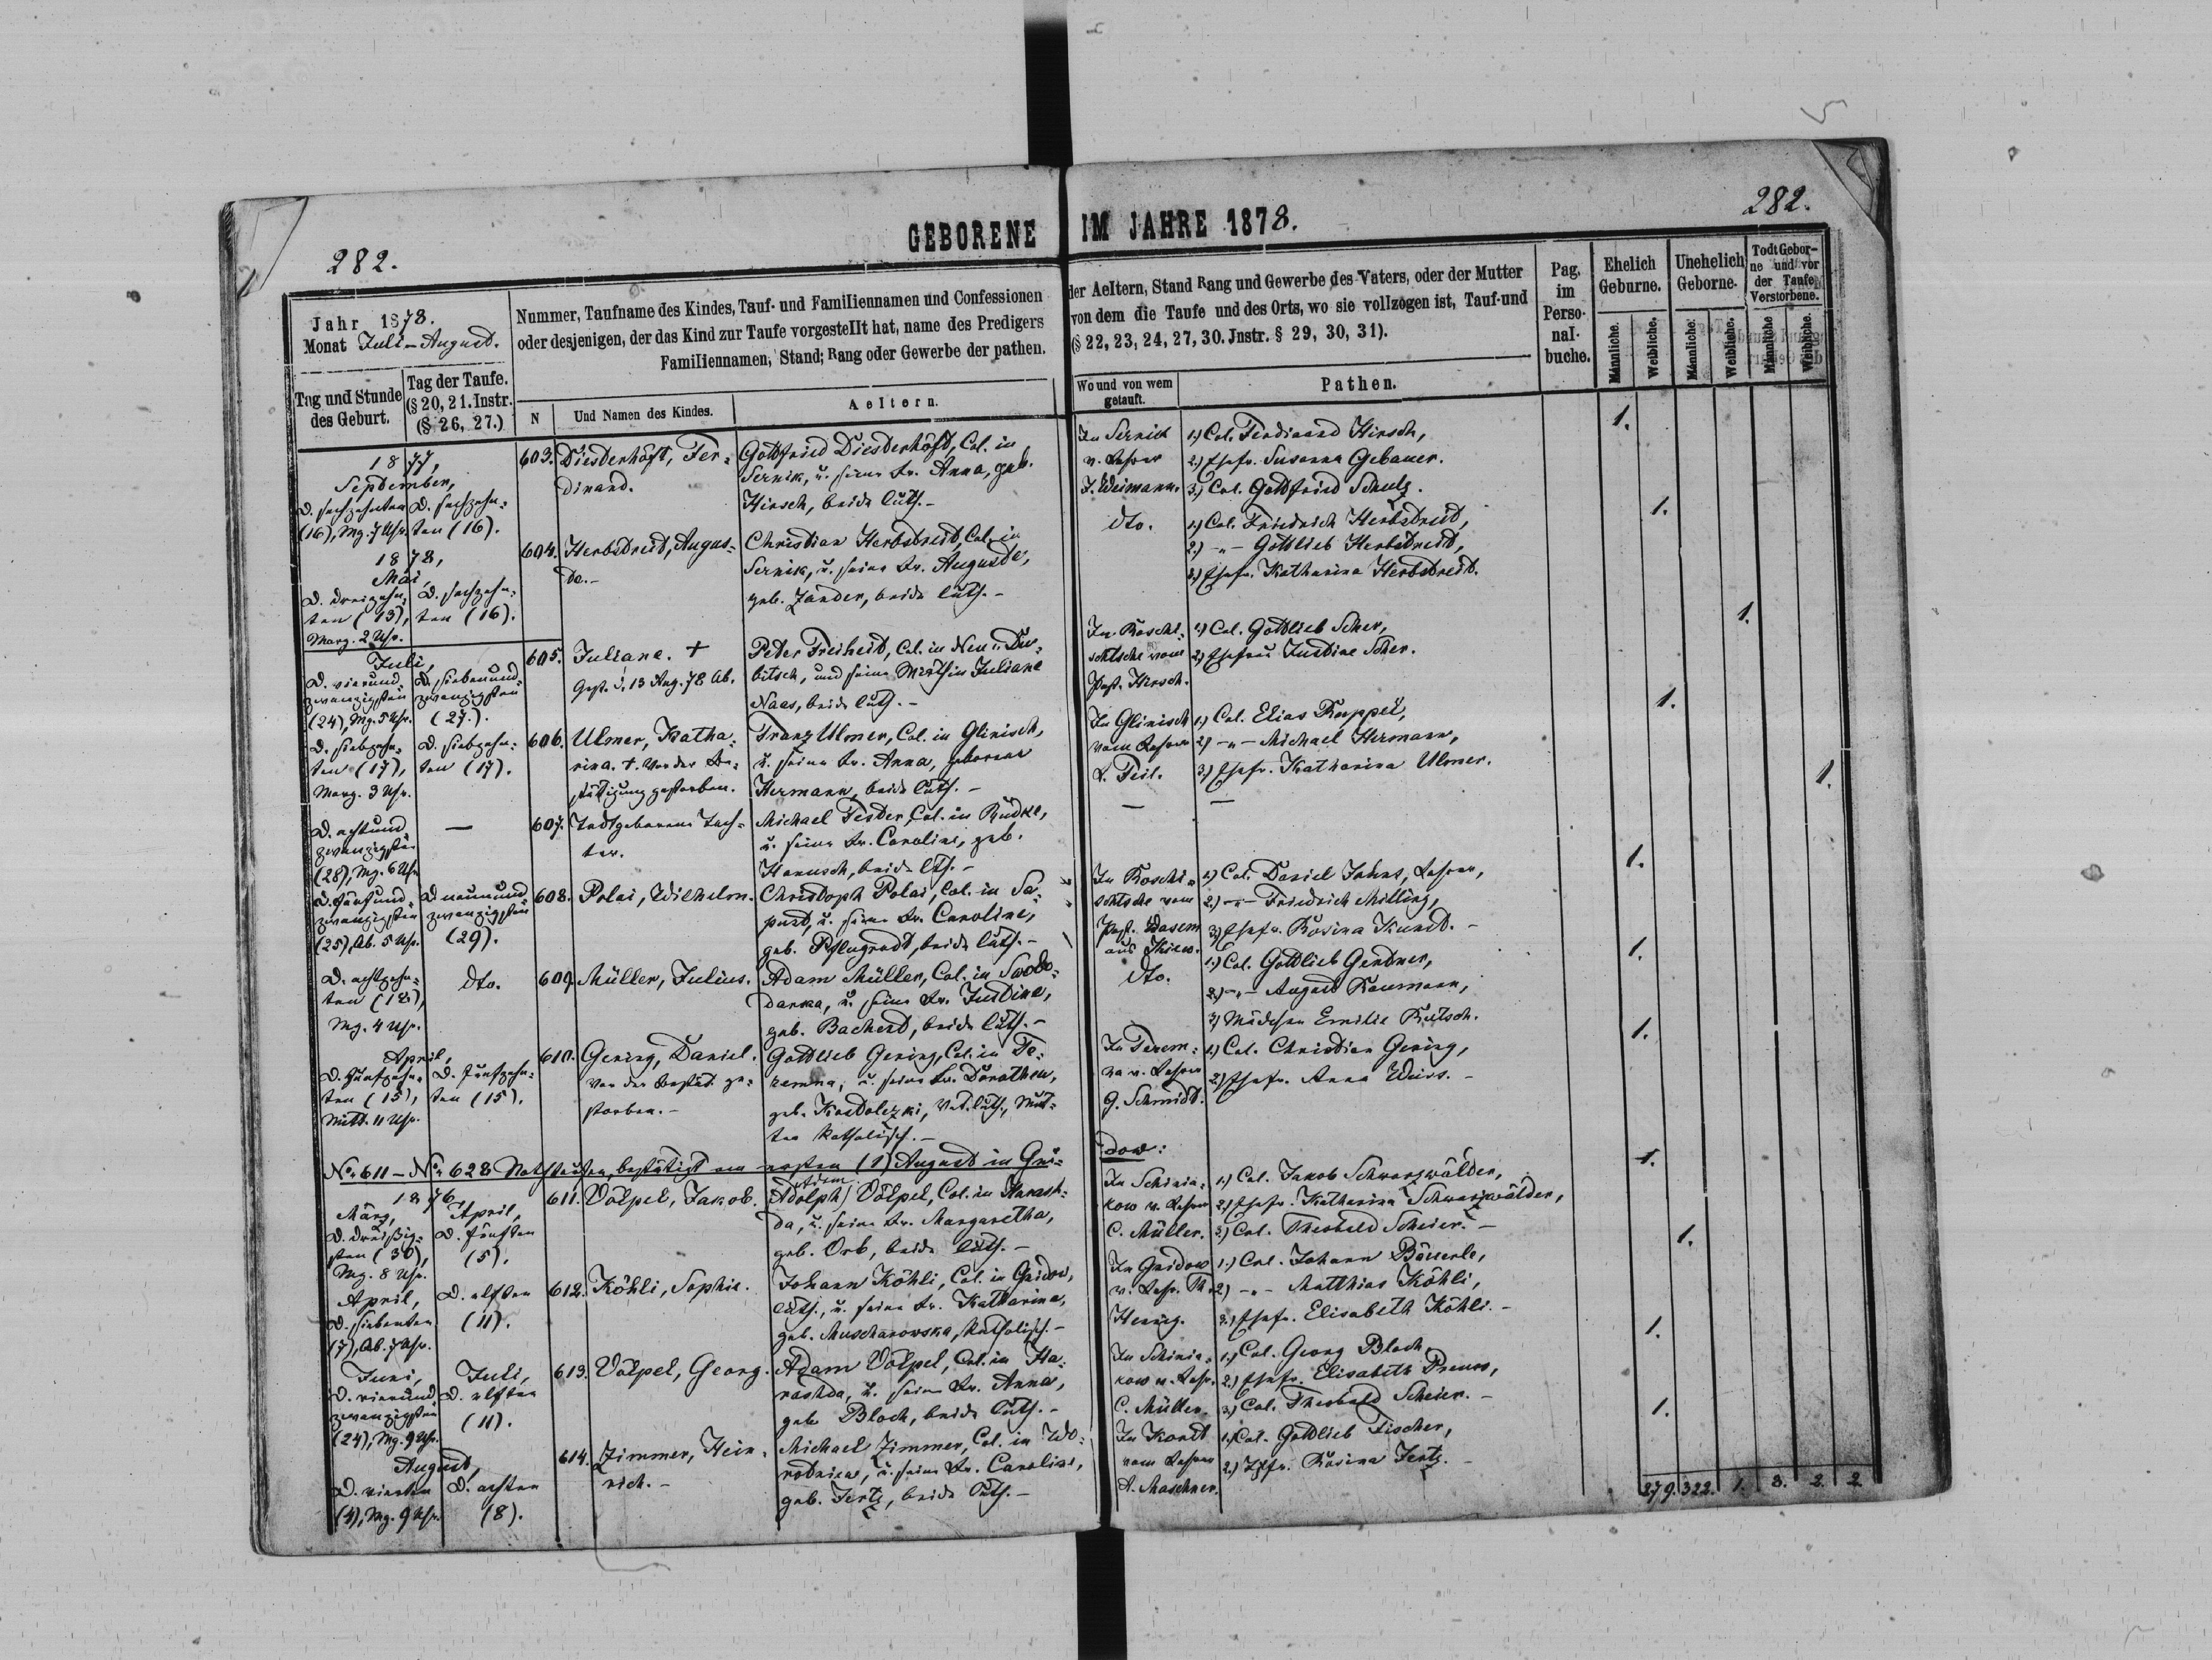 282.
GEBORENE IM JAHRE 1878.
282.
Jahr 1878.
Monat Juli-August.
Tag und Stunde des Geburt.
Tag der Taufe. (§ 20, 21. Instr. (§ 26, 27.)
Nummer, Taufname des Kindes, Tauf- und Familiennamen und Confessionen
oder desjenigen, der das Kind zur Taufe vorgestellt hat, name des Predigers
Familiennamen, Stand; Rang oder Gewerbe der pathen.
N
Und Namen des Kindes.
Aeltern.
der Aeltern, Stand Rang und Gewerbe des Vaters, oder der Mutter
von dem die Taufe und des Orts, wo sie vollzogen ist, Tauf-und
(§ 22, 23, 24, 27, 30. Jnstr. § 29, 30, 31).
Wo und von wem getauft.
Pathen.
Pag. im Perso- nal- buche.
Ehelich Geburne.
Unehelich Geborne.
Todt Gebor- ne und vor der Taufe Verstorbene.
Männliche. Weibliche. Männliche. Weibliche. Männliche Weibliche.
1877,
September,
D. sechzehnten
(16), Mg. 7 Uhr.
D. sechzehn-
ten (16).
603.
Diesterhöft, Fer-
dinand.
Gottfried Diesterhöft, Col. in
Sernik, u. seine Fr. Anna, geb.
Hirsch, beide luth. -
In Sernik
v. Lehrer
J. Weimann.
1.) Col. Ferdinand Hirsch,
2.) Ehefr. Susanna Gebauer.
3.) Col. Gottfried Schulz.
1.
1878,
Mai,
D. dreizehn-
ten (13),
Morg. 2 Uhr.
D. sechzehn-
ten (16).
604.
Herbstreit, Augus-
te. -
Christian Herbstreit, Col. in
Sernik, u. seine Fr. Auguste,
geb. Zander, beide luth. -
dto.
1.) Col. Friedrich Herbstreit,
2.) -"- Gottlieb Herbstreit,
3.) Ehefr. Katharina Herbstreit.
1.
Juli,
D. vierund-
zwanzigsten
(24), Mg. 5 Uhr.
D. siebenund-
zwanzigsten
(27.).
605.
Juliane. +
Gest. d. 13 Aug. 78 Ab.
Peter Freiheit, Col. in Neu-Du-
bitsch, und seine Wirthin Juliane
Naas, beide luth. -
In Roschi-
schtsche vom
Past. Hirsch.
1.) Col. Gottlieb Scher,
2.) Ehefrau Justine Scher.
1.
D. siebzehn-
ten (17),
Morg. 3 Uhr.
D. siebzehn-
ten (17).
606.
Ulmer, Katha-
rina. +. Vor der Be-
stätigung gestorben.
Franz Ulmer, Col. in Glinisch,
u. seine Fr. Anna, geborene
Hermann, beide luth. -
In Glinisch
vom Lehrer
L. Teil.
1.) Col. Elias Ruppel,
2.) -"- Michael Hermann,
3.) Ehefr. Katharina Ulmer.
1.
D. achtund-
zwanzigsten
(28), Mg. 6 Uhr
—
607.
Todtgeborene Toch-
ter.
Michael Tester, Col. in Rudke,
u. seine Fr. Caroline, geb.
Hanusch, beide lth. -
—
—
1.
D. fünfund-
zwanzigsten
(25), Ab. 5 Uhr.
D. neunund-
zwanzigsten
(29).
608.
Polai, Wilhelm.
Christoph Polai, Col. in Sa-
pust, u. seine Fr. Caroline,
geb. Pflugradt, beide luth. -
In Roschi-
schtsche vom
Past. Wasem
aus Kiew.
1.) Col. Daniel Jahns, Lehrer,
2.) -"- Friedrich Milling,
3.) Ehefr. Rosina Kundt. -
1.
D. achtzehn-
ten (18),
Mg. 4 Uhr.
dto.
609.
Müller, Julius.
Adam Müller, Col. in Swobo-
darka, u. seine Fr. Justine,
geb. Bachert, beide luth. -
dto.
1.) Col. Gottlieb Gentner,
2.) -"- August Naumann,
3.) Mädchen Emilie Rutsch.
1.
April,
D. fünfzehn-
ten (15),
Mitt. 11 Uhr.
D. fünfzehn-
ten (15).
610.
Gering, Daniel.
Vor der Bestät. ge-
storben. -
Gottlieb Gering, Col. in Te-
remna, u. seine Fr. Dorothea,
geb. Kosdolezki, Vat. luth., Mut-
ter katholisch. -
In Terem-
na v. Lehrer
G. Schmidt.
1.) Col. Christian Gering,
2.) Ehefr. Anna Weiss. -
1.
No. 611 - No. 628 Nothtaufen, bestätigt am ersten (1) August in Gni-
dow:
1876
März,
D. dreißig-
sten (30),
Mg. 8 Uhr.
April,
D. fünften
(5).
611.
Völpel, Jakob.
Adam
(Adolph) Völpel, Col. in Harash-
da, u. seine Fr. Margaretha,
geb. Orb, beide luth. -
In Schinia-
kow v. Lehrer
C. Müller.
1.) Col. Jakob Schwarzwälder,
2.) Ehefr. Katharina Schwarzwälder,
3.) Col. Theobald Scheier. -
1.
April,
D. siebenten
(7), Ab. 7 Uhr.
D. elften
(11).
612.
Köhli, Sophie.
Johann Köhli, Col. in Gnidow,
luth., u. seine Fr. Katharina,
geb. Muschanowska, katholisch. -
In Gnidow
v. Lehr. Th.
Hennig.
1.) Col. Johann Bäuerle,
2.) -"- Matthias Köhli,
3.) Ehefr. Elisabeth Köhli. -
1.
Juni,
D. vierund-
zwanzigsten
(24), Mg. 9 Uhr.
Juli,
D. elften
(11).
613.
Völpel, Georg.
Adam Völpel, Col. in Ha-
rashda, u. seine Fr. Anna,
geb. Bloch, beide luth. -
In Schinia-
kow v. Lehr.
C. Müller.
1.) Col. Georg Bloch,
2.) Ehefr. Elisabeth Preuss,
3.) Col. Theobald Scheier. -
1.
August,
D. vierten
(4), Mg. 9 Uhr.
D. achten
(8).
614.
Zimmer, Hein-
rich. -
Michael Zimmer, Col. in Wo-
rotniew, u. seine Fr. Caroline,
geb. Jertz, beide luth. -
In Korst
vom Lehrer
A. Maschner.
1.) Col. Gottlieb Fischer,
2.) Ehefr. Rosina Jertz. -
1.
279. 322. 1. 3. 2. 2